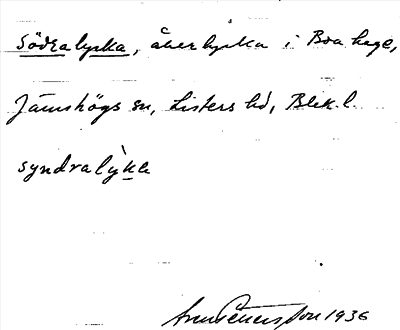 Södralycka, åkerlycka i Boa hage,
Jämshögs sn, Listers hd, Blek. l.
syndralỳka
Pettersson 1936